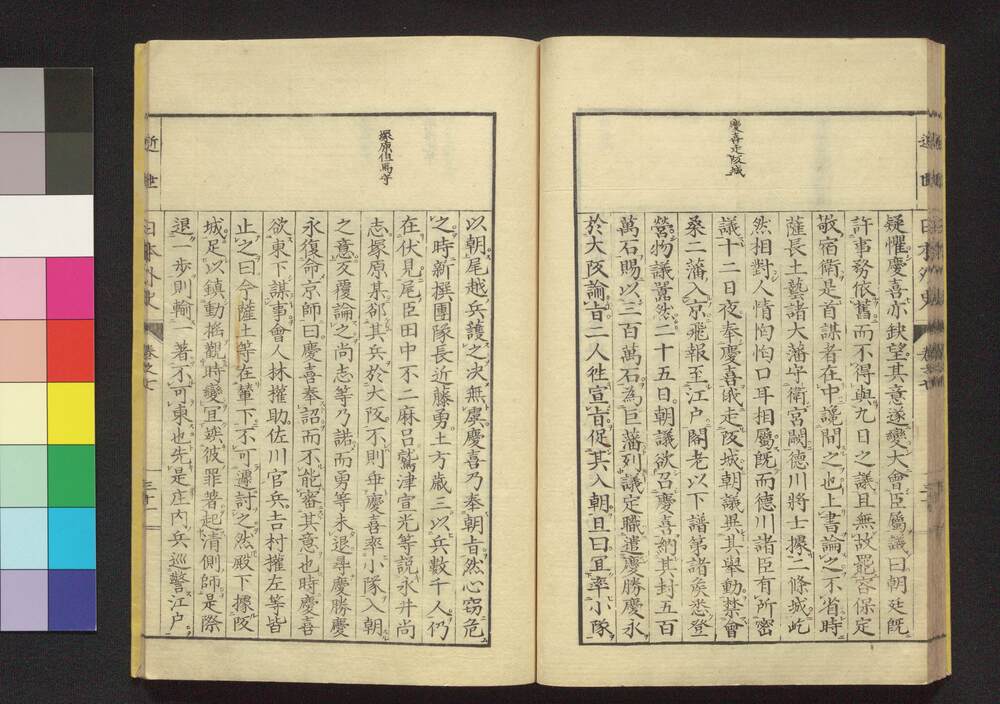 慶喜走阪城
疑懼慶喜亦缺望其意遂變大會臣屬議曰朝廷既
許事務依舊而不得與九日之議且無故罷容保定
敬宿衛是首謀者在中讒間之也上書論之不省時
薩長土藝諸大藩守衛宮闕德川將士據二條城屹
然相對人情恟恟口耳相屬既而德川諸臣有所密
議十二日夜奉慶喜俄走阪城朝議異其舉動禁會
桑二藩入京飛報至江戶閣老以下譜第諸侯悉登
營物議囂然二十五日朝議欲召慶喜納其封五百
萬石賜以三百萬石為巨藩列議定職遣慶勝慶永
於大阪諭旨二人徃宣旨促其入朝且曰宜率小隊
塚原但馬守
以朝尾越兵護之決無虞慶喜乃奉朝旨然心竊危
之時新撰團隊長近藤勇土方歲三以兵數千人仍
在伏見尾臣田中不二麻呂鷲津宣光等說永井尚
志塚原某郤其兵於大阪不則垂慶喜率小隊入朝
之意反覆論之尚志等乃諾而勇等未退尋慶勝慶
永復命京師曰慶喜奉詔而不能審其意也時慶喜
欲東下謀事會人林權助佐川官兵吉村權左等皆
止之曰今薩土等在輦下不可遽討之然殿下據阪
城足以鎮動搖觀時變宜竢彼罪著起清側師是際
退一步則輸一著不可東也先是庄內兵巡警江戶
近世
日本外史
卷之七
三十一